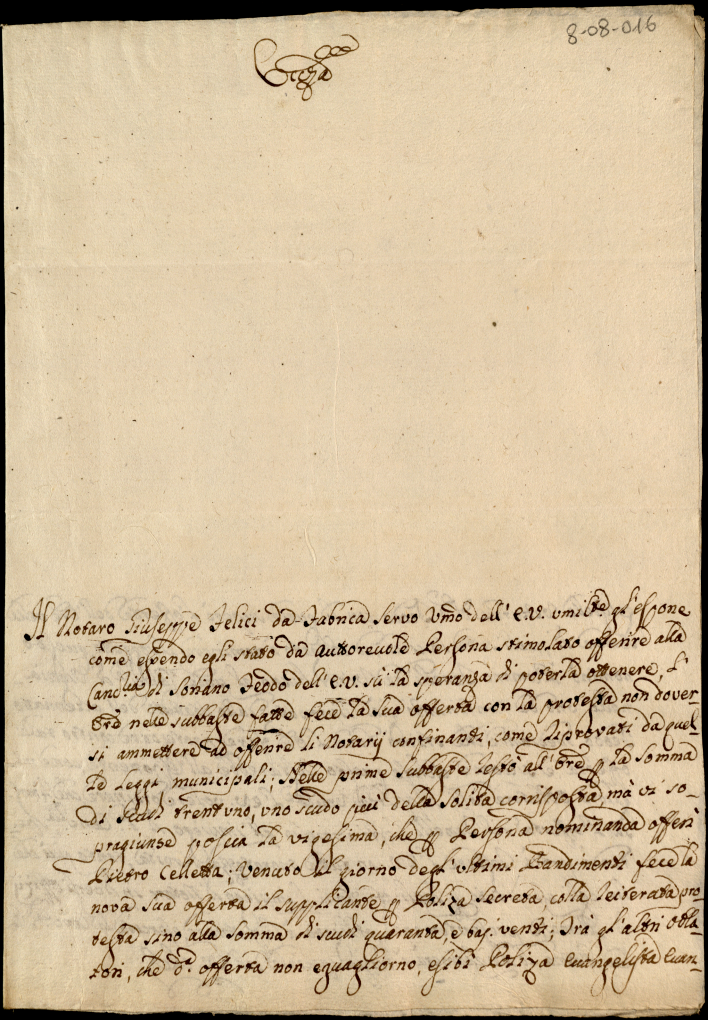 8-08-016
Eccza
Il Notaro Giuseppe Felici da Fabrica servo Vmo dell' E.V. vmilte gl'espone
come essendo egli stato da auttorevole Persona stimolato offerire alla
Cancllia di Soriano Feodo dell' E.V. sù la speranza di poterla ottenere, l'
Orè nelle subbaste fatte fece la sua offerta con la protesta non dover-
si ammettere ad offerire li Notarij confinanti, come riprovati da quel-
le leggi municipali; Nelle prime subbaste restò all' Orè p la somma
di scudi trentuno, uno scudo più della solita corrisposta, mà vi so-
pragiunse poscia la vigesima, che p Persona nominanda offerì
Pietro Celletta; Venuto il giorno degl'ultimi Bandimenti fece la
nova sua offerta il supplicante p Poliza secreta, colla reiterata pro-
testa sino alla somma di scudi quaranta, e baj. venti; Trà gl'altri obla-
tori, che da. offerta non eguagliorno, esibì Poliza Evangelista Evan-